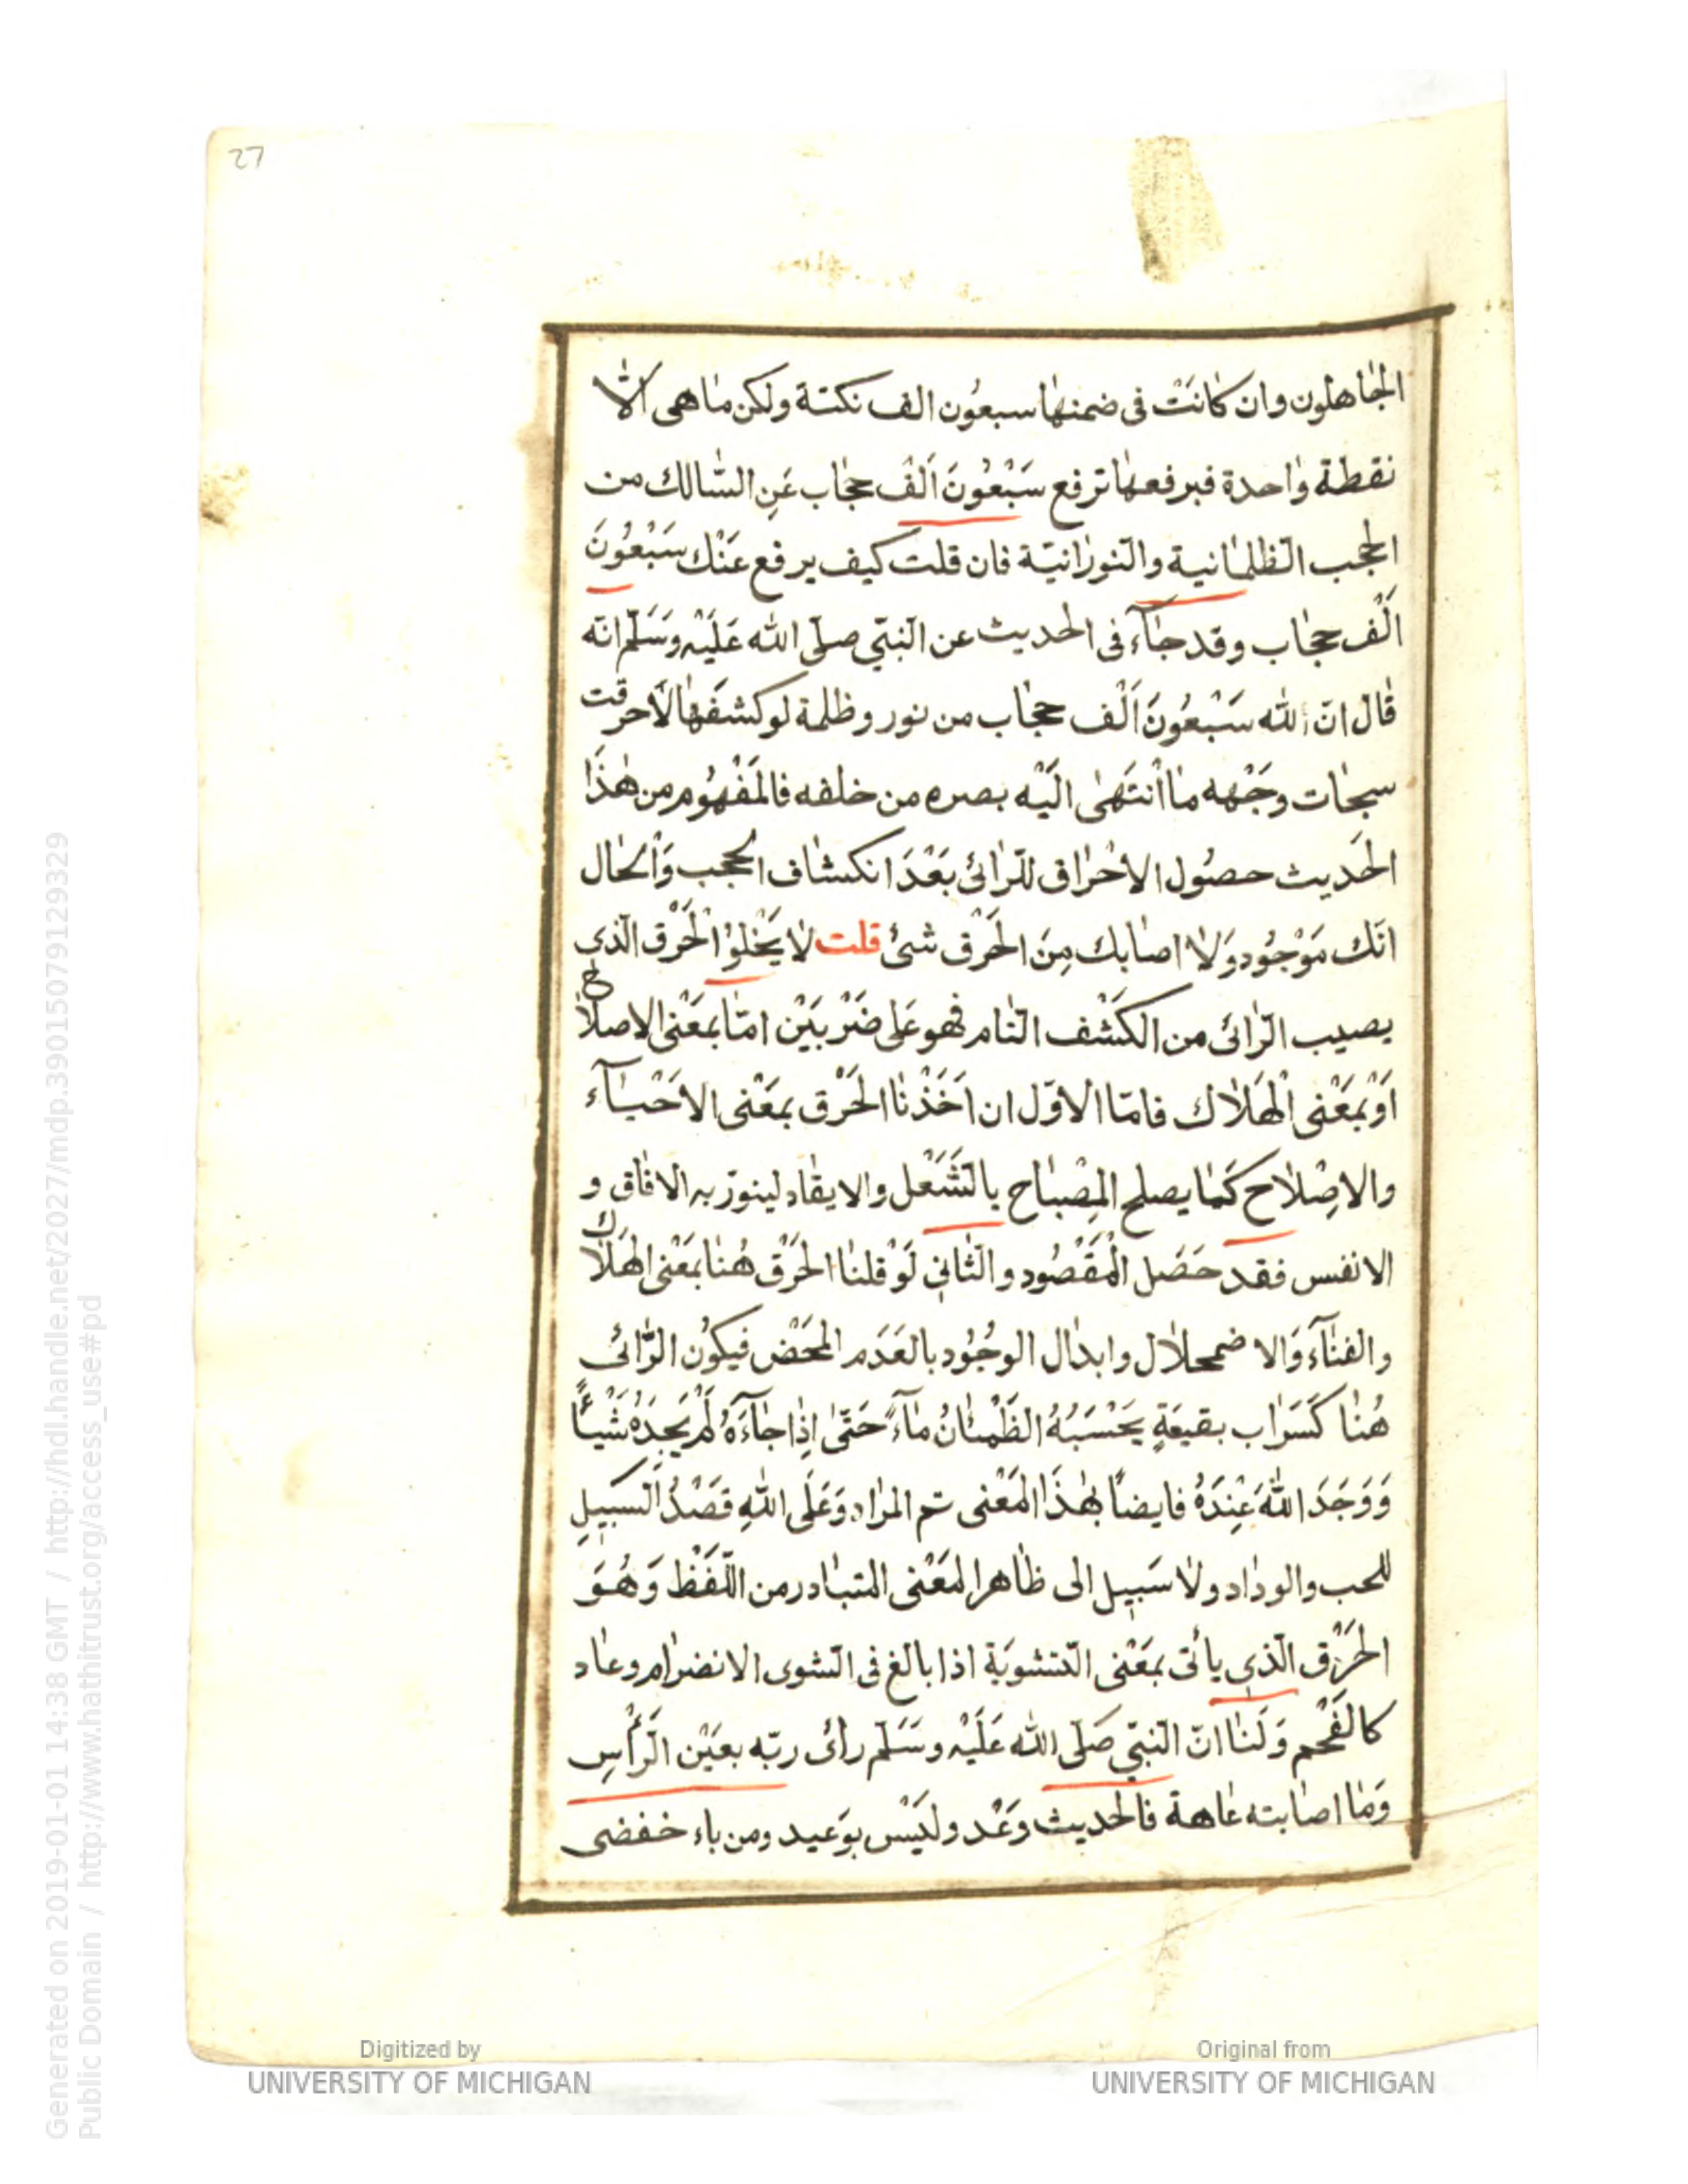 27
الجٰاهلون وان كٰانَتْ فى ضمنهٰا سبعُون الف نكتة ولكن مٰاهى الّا
نقطة وٰاحدة فبرفعهٰا ترفع سَبْعُونَ اَلْف حجٰاب عَنِ السّٰالك من
الحجب الظّلمٰانية والنّورٰانيّة فان قلت كيف يرفع عَنْك سَبْعُونَ
اَلْف حجٰاب وقد جٰآء فى الحديث عن النّبىّ صلّى الله عَلَيْه وسَلّم انّه
قٰال انّ لله سَبْعُونَ اَلْف حجٰاب من نور وظلمة لو كشفَهٰا لَاحرقت
سبحٰات وجْهه مٰا اْنتَهىٰ الَيْه بصره من خلقه فالمَفْهُوم من هٰذَا
الحَديث حصُول الاحْرٰاق للرّٰائى بَعْدَ انكشٰاف الحجب وَاْلحٰال
انّك مَوْجُود وَلٰا اصٰابك مِنَ الحَرْق شئ قلت لٰا يَخْلوْا الْحَرْق الّذى
يصيب الرّٰائى من الكَشْف التّٰام فهو عَلى ضَرْبَيْن امّٰا بمَعْنى الاصلاح
اَوْ بمَعْنى اْلهَلٰاك فامّا الاوّل ان اَخَذْنٰا الحَرْق بمَعْنى الاحْيٰآء
والاصِْلٰاح كَمٰا يصلح المِصْبٰاح بالتَّشَعْل والايقٰاد لينوّر به الافٰاق و
الانفس فقد حَصَل اْلمَقْصُود والثّٰانى لَوْ قلنٰا الحَرْق هُنٰا بمَعْنى الهَلٰاك
والفنٰآء وَالاضمحلٰال وابدٰال الوجُود بالعَدَم المحَضْ فيكُون الرّٰائى
هُنٰا كَسَرٰاب بقيعَةٍ يَحْسَبُهُ الظَمْئٰانُ مٰآءً حَتّىٰ اِذٰا جٰآءَهُ لَمْ يَجِدْهُ شَيْئًا
وَوَجَدَ اللهَ عِنْدَهُ فايضًا بهٰذَا المَعْنى تم المرٰاد وَعَلَى اللهِ قَصْدُ السَبيلِ
للحب والودٰاد ولٰا سَبيل الى ظٰاهر المَعْنى المتبٰادر من اللّفْظ وَهُوَ
الحَرْق الّذى يأتى بمَعْنى التّشويَة اذا بالغ فى الشّوى الانضرٰام وعٰاد
كالفَحْم وَلَنٰا انّ النّبىّ صَلّى الله عَلَيْه وسَلّم رأى ربّه بعَيْن الرّأسِ
وَمٰا اصٰابته عٰاهة فالحديث وَعْد ولَيْس بوَعيد ومن باء خفضى
Generated on 2019-01-01 14:38 GMT / http://hdl.handle.net/2027/mdp.39015079129329
Public Domain / http://www.hathitrust.org/access_use#pd
Digitized by
UNIVERSITY OF MICHIGAN
Original from
UNIVERSITY OF MICHIGAN